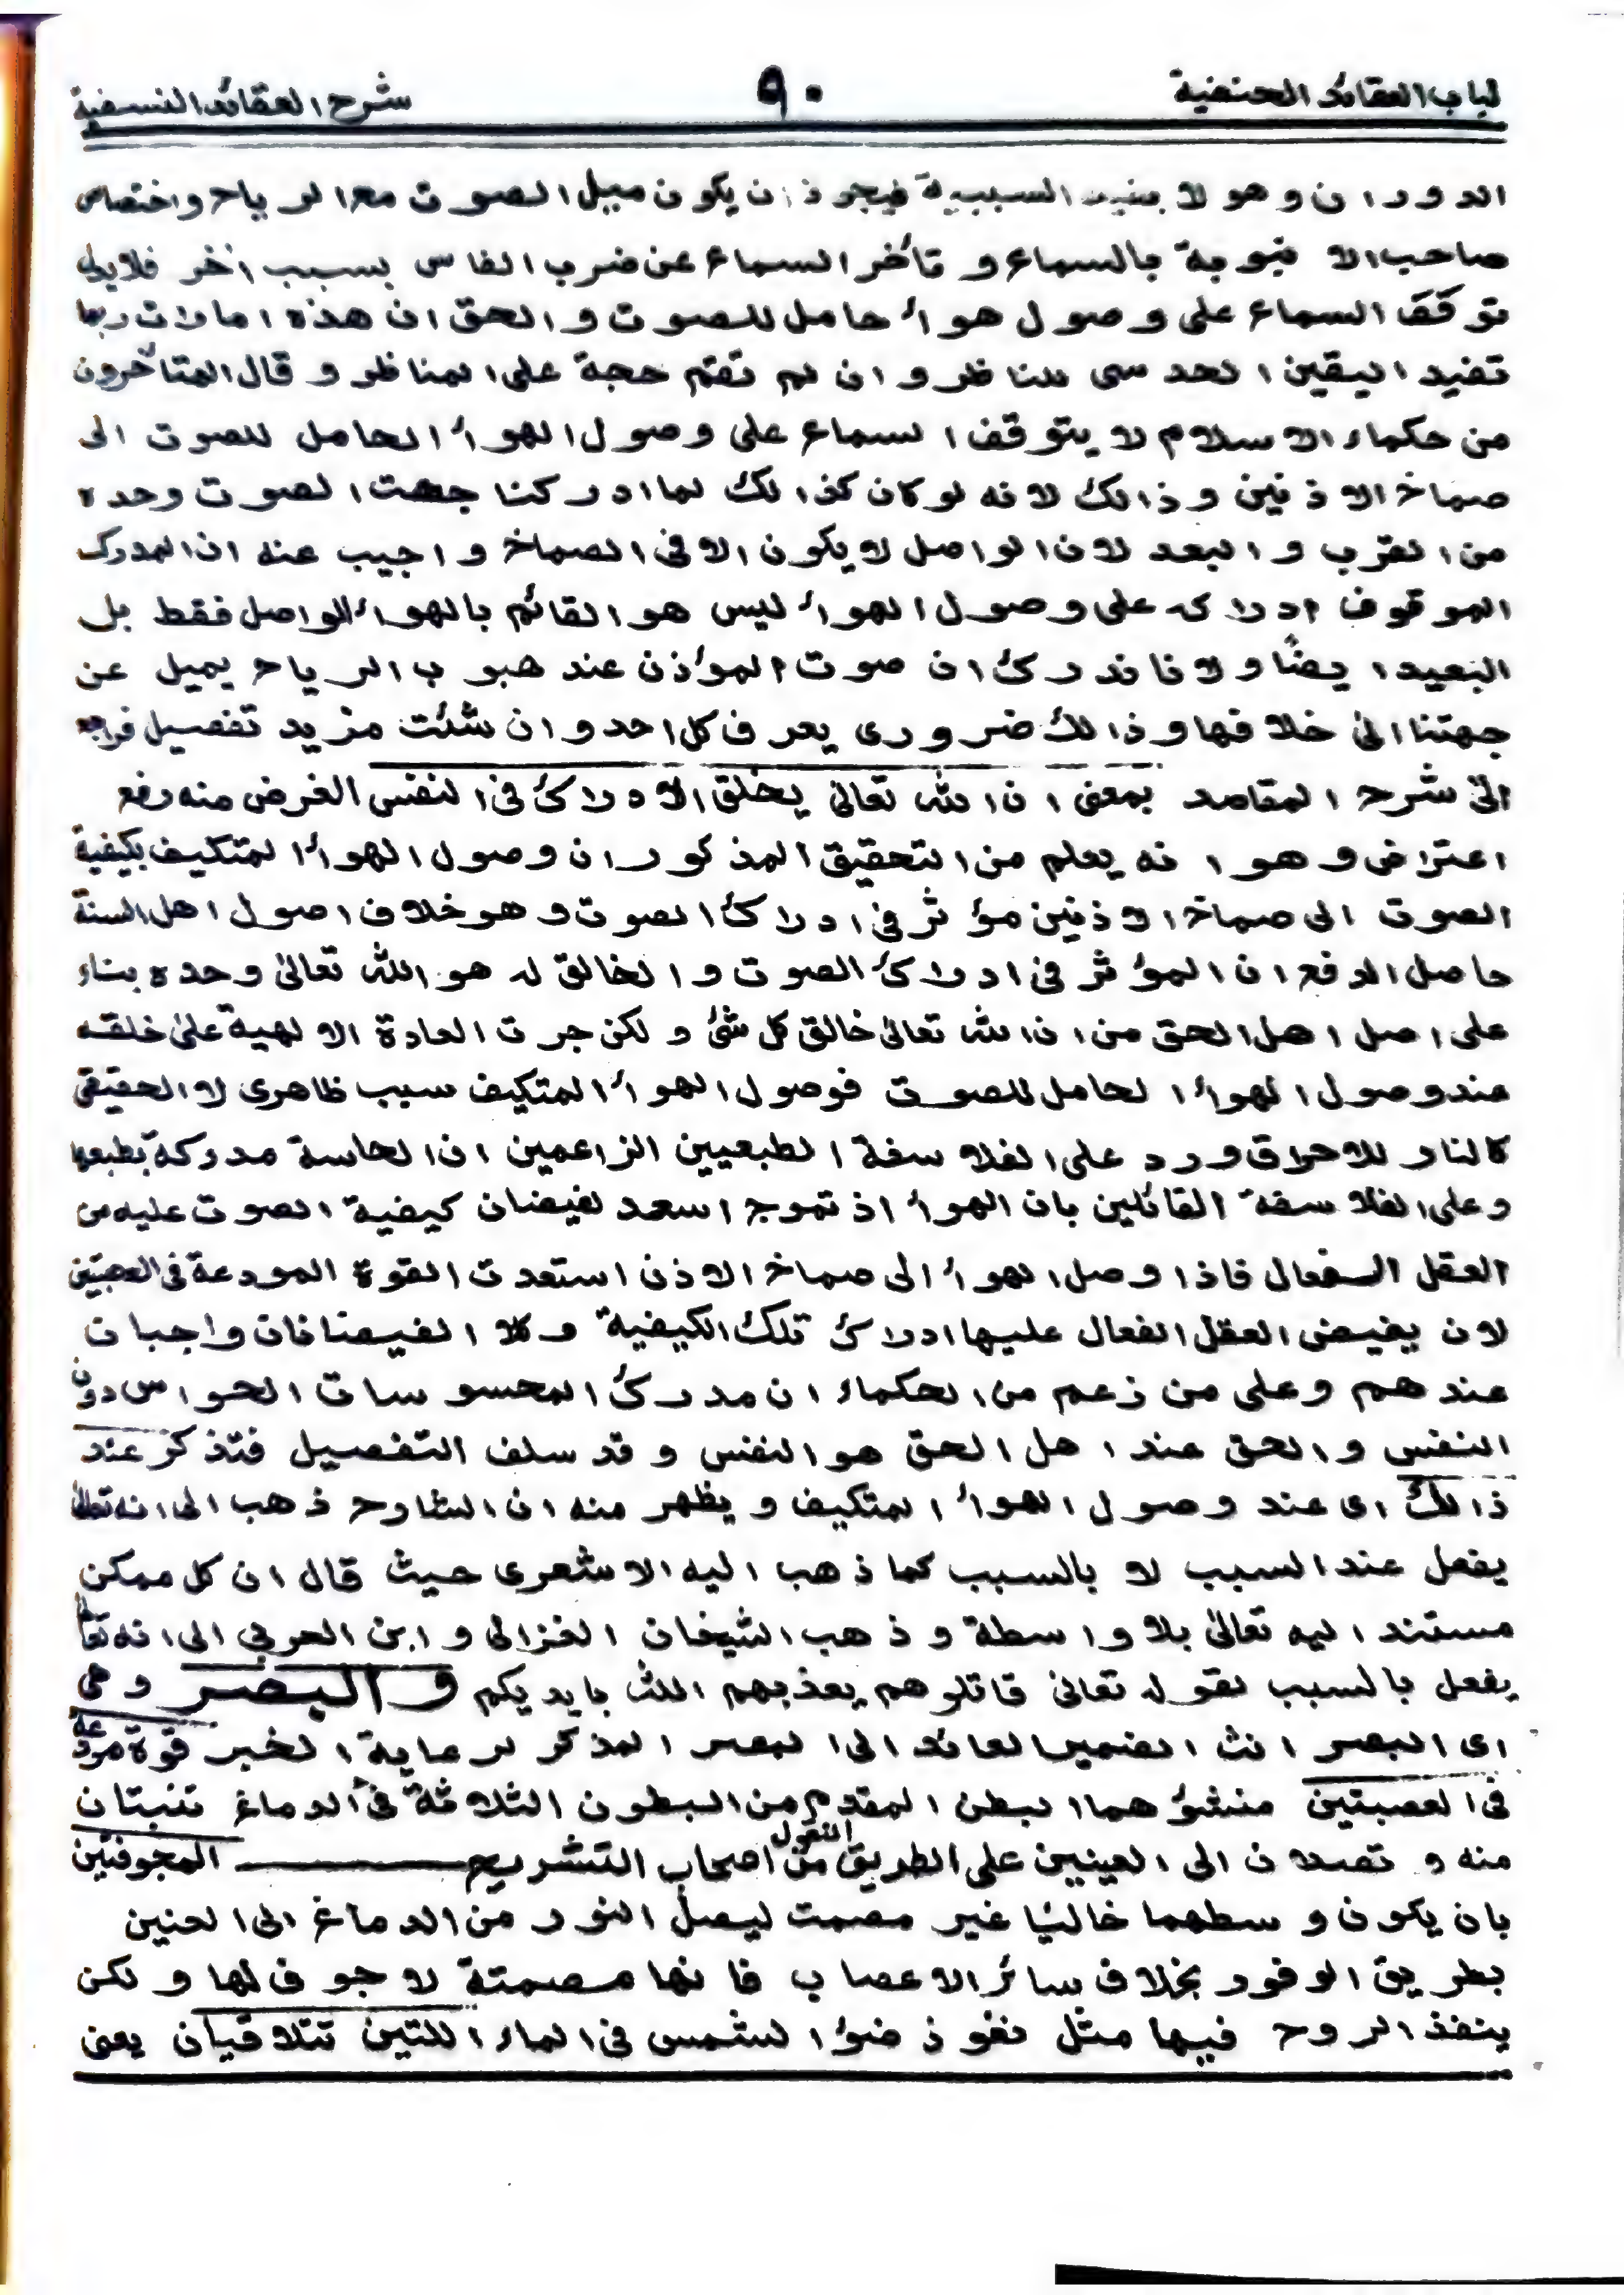 لباب العقائد الحنفية
٩٠
شرح العقائد النسفية
الدوران وهو لا يفيد السببية فيجوز ان يكون ميل الصوت مع الرياح واختصاص
صاحب الانبوبة بالسماع و تأخر السماع عن ضرب الفاس بسبب اخر فلايدل
توقف السماع على وصول هواء حامل للصوت والحق ان هذه امارات ربما
تفيد اليقين الحدسى للناظر و ان لم تقم حجة على المناظر و قال المتأخرون
من حكماء الاسلام لا يتوقف السماع على وصول الهواء الحامل للصوت الى
صماخ الاذنين وذالك لانه لو كان كذالك لما ادركنا جهت الصوت وحده
من القرب و البعد لان الواصل لا يكون الا فى الصماخ و اجيب عنه ان المدرك
الموقوف ادراكه على وصول الهواء ليس هو القائم بالهواء الواصل فقط بل
البعيد ايضًا ولانا ندرك ان صوت المؤذن عند هبوب الرياح يميل عن
جهتنا الى خلافها وذالك ضرورى يعرف كل احد وان شئت مزيد تفصيل فراجع
الى شرح المقاصد بمعنى ان الله تعالى يخلق الادراك فى النفس الغرض منه رفع
اعتراض وهو انه يعلم من التحقيق المذكور ان وصول الهواء المتكيف بكيفية
الصوت الى صماخ الاذنين مؤثر فى ادراك الصوت وهو خلاف اصول اهل السنة
حاصل الدفع ان المؤثر فى ادراك الصوت و الخالق له هو الله تعالى وحده بناء
على اصل اهل الحق من ان الله تعالى خالق كل شئ و لكن جرت العادة الالهية على خلقه
عند وصول الهواء الحامل للصوت فوصول الهواء المتكيف سبب ظاهرى لا الحقيقى
كالنار للاحراق ورد على الفلاسفة الطبعيين الزاعمين ان الحاسة مدركة بطبعها
وعلى الفلاسفة القائلين بان الهواء اذ تموج اسعد لفيضان كيفية الصوت عليه من
العقل الفعال فاذا وصل الهواء الى صماخ الاذن استعدت القوة المودعة فى العصبتين
لان يفيض العقل الفعال عليها ادراك تلك الكيفية و كلا الفيضنانان واجبان
عندهم وعلى من زعم من الحكماء ان مدرك المحسوسات الحواس دون
النفس و الحق عند اهل الحق هو النفس و قد سلف التفصيل فتذكر عند
ذالك اى عند وصول الهواء المتكيف و يظهر منه ان الشارح ذهب الى انه تعالى
يفعل عند السبب لا بالسبب كما ذهب اليه الاشعرى حيث قال ان كل ممكن
مستند اليه تعالى بلا واسطة و ذهب الشيخان الغزالى و ابن العربى الى انه تعالى
يفعل بالسبب لقوله تعالى قاتلوهم يعذبهم الله بايديكم و البصر وهى
اى البصر انث الضمير العائد الى البصر المذكر لرعاية الخبر قوة مودعة
فى العصبتين منشؤهما البطن المقدم من البطون الثلاثة فى الدماغ تنبتان
منه و تصلان الى العينين على الطريق المنقول من اصحاب التشريح المجوفتين
بان يكون وسطهما خاليًا غير مصمت ليصل النور من الدماغ الى العنين
بطريق الوفور بخلاف سائر الاعصاب فانها مصمتة لا جوف لها و لكن
ينفذ الروح فيها مثل نفوذ ضوء الشمس فى الماء اللتين تتلاقيان يعنى